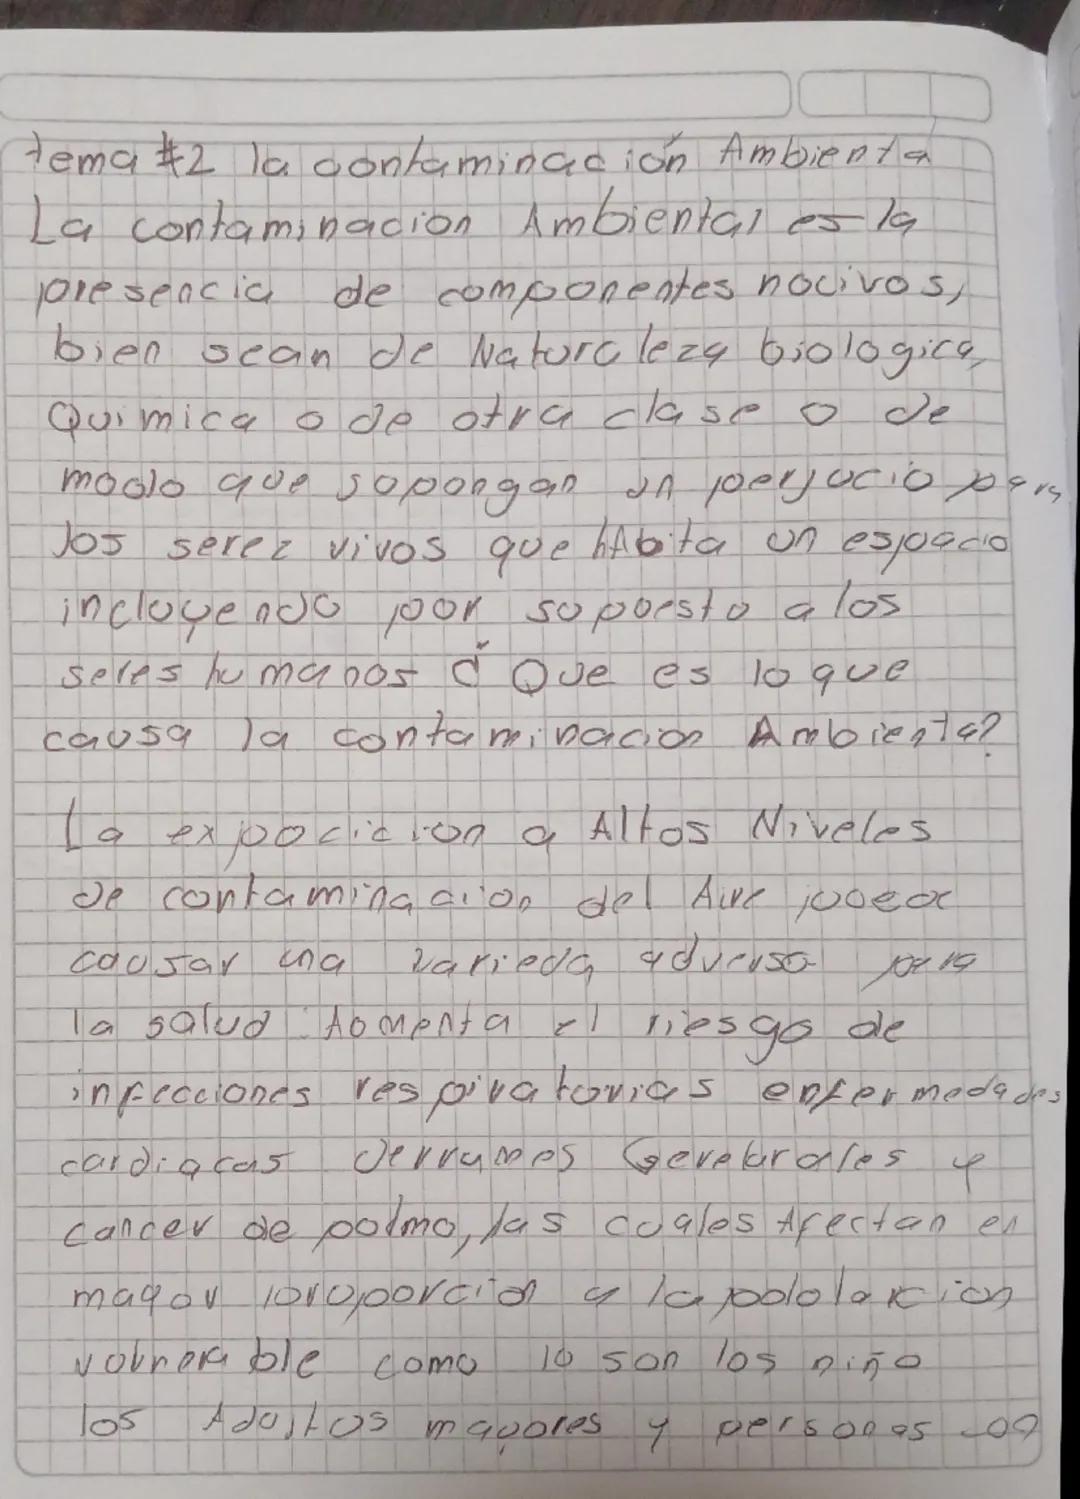 tema #2 la contaminación Ambienta
La contaminacion Ambiental es la
presencia de componentes nocivos,
bien sean de Naturaleza biologica,
Quimica o de otra clase o de
modo que supongan un perjucio para
los serez vivos que hAbita un espacio
incluyendo por supuesto a los
seres humanos ¿ Que es lo que
causa la contaminacion Ambienta?
La expocicion a Altos Niveles
de contaminacion del Aire
causar una varieda adversa para
la salud Aumenta el riesgo de
infecciones respiratorias enfermedades
cardiacas derrames Cerebrales y
cancer de pulmo, las cuales Afectan en
mayor proporcion a la
vulnerable como lo son los niño
los Adultos mayores y personas con